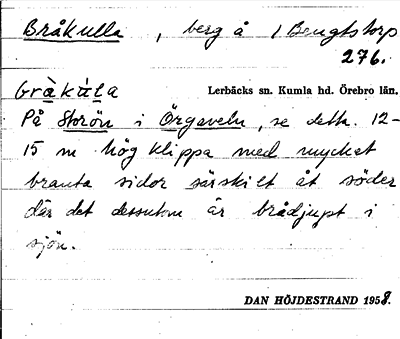 Bråkulla, berg å 1 Bengtstorp
276.
Lerbäcks sn. Kumla hd. Örebro län.
På Storön i Örgaveln, se detta. 12-
15 m hög klippa med mycket
branta sidor särskilt åt söder
där det dessutom är brådjupt i
sjön.
DAN HÖJDESTRAND 1958.